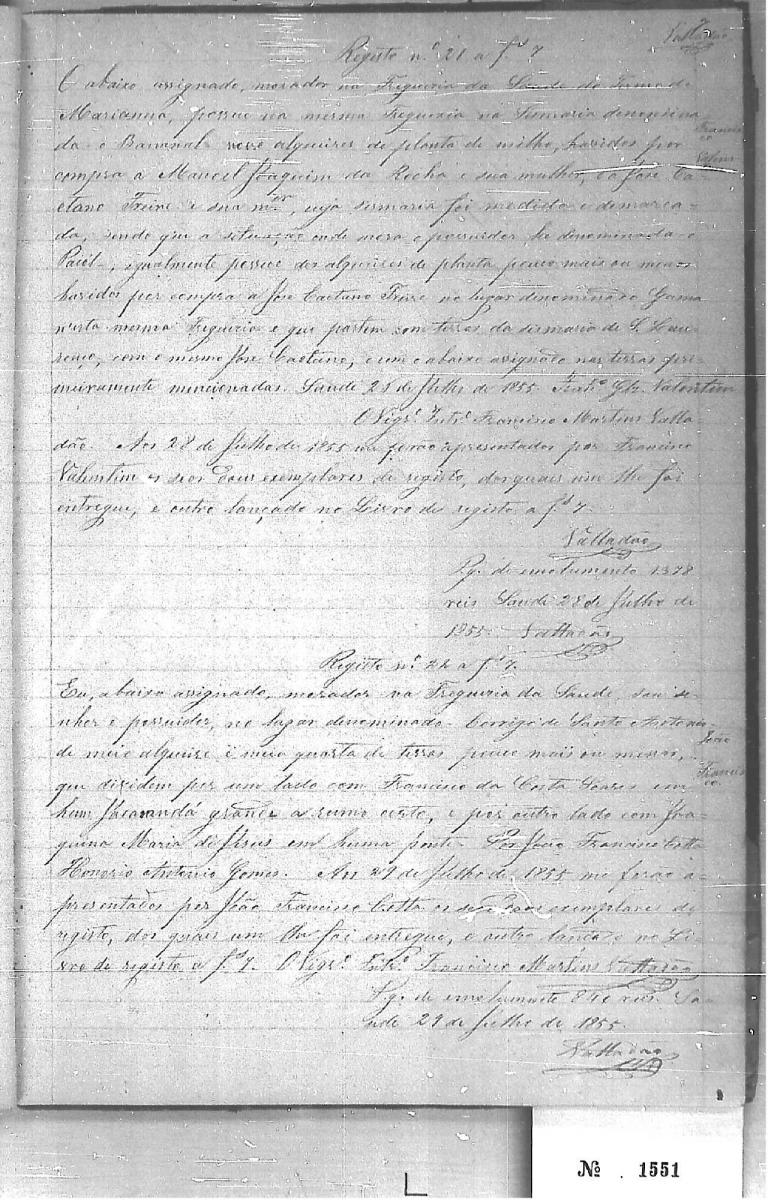 7
Valladão
Registo n.º 21 a f.s 7
O abaixo assignado, morador na Freguezia da Saude do Termo de
Marianna, possue na mesma Freguezia na Sismaria denomina
da - o Bananal - nove alqueires de planta de milho, havidos por
compra a Manoel Joaquim da Rocha e sua mulher, e a José Ca-
etano Freire e sua m.er, cuja sismaria foi medida e demarca-
da, sendo que a situação onde mora e possuidor he denominada - o
igualmente possue dos alqueires de planta pouco mais ou menos
havidos por compra a José Caetano Freire no lugar denominado Gama
n'esta mesma Freguezia e que partem com terras da sismaria de S. Lou-
renço, com o mesmo José Caetano, e com o abaixo assignado nas terras pri-
meiramente mencionadas. Saude 21 de Julho de 1855. Fran.co Glz. Valentim
O Vigr.º Intr.º Francisco Martins Valla-
dão. Aos 28 de Julho de 1855 me forão apresentados por Francisco
Valentim os seos dous exemplares de registo, dos quaes um lhe foi
entregue, e outro lançado no Livro de registo a f.s 7.
Valladão
Pg. de emolumento 1378
reis Saude 28 de Julho de
1855. Valladão
Francis
co
Valen
Registo n.º 22 a f.s 7.
Eu, abaixo assignado, morador na Freguezia da Saude, sou se-
nhor e possuidor, no lugar denominado - Corrigo de Santo Antonio -
de meio alqueire e meia quarta de terras pouco mais ou menos,
que dividem por um lado com Francisco da Costa Soares em
hum Jacarandá grande a rumo certo, e por outro lado com Joa-
quina Maria de Jesus em huma ponte. Por João Francisco Cotta
Honorio Antonio Gomes. Aos 29 de Julho de 1855 me forão a-
presentados por João Francisco Cotta os seos dous exemplares de
registo, dos quaes um lhe foi entregue, e outro lançado no Li-
vro de registo a f.s 7. O Vigr.º Intr.º Francisco Martins Valladão
Pg. de emolumento 840 reis. Sa-
ude 29 de Julho de 1855.
Valladão
João
Francis
co
Nº 1551
L